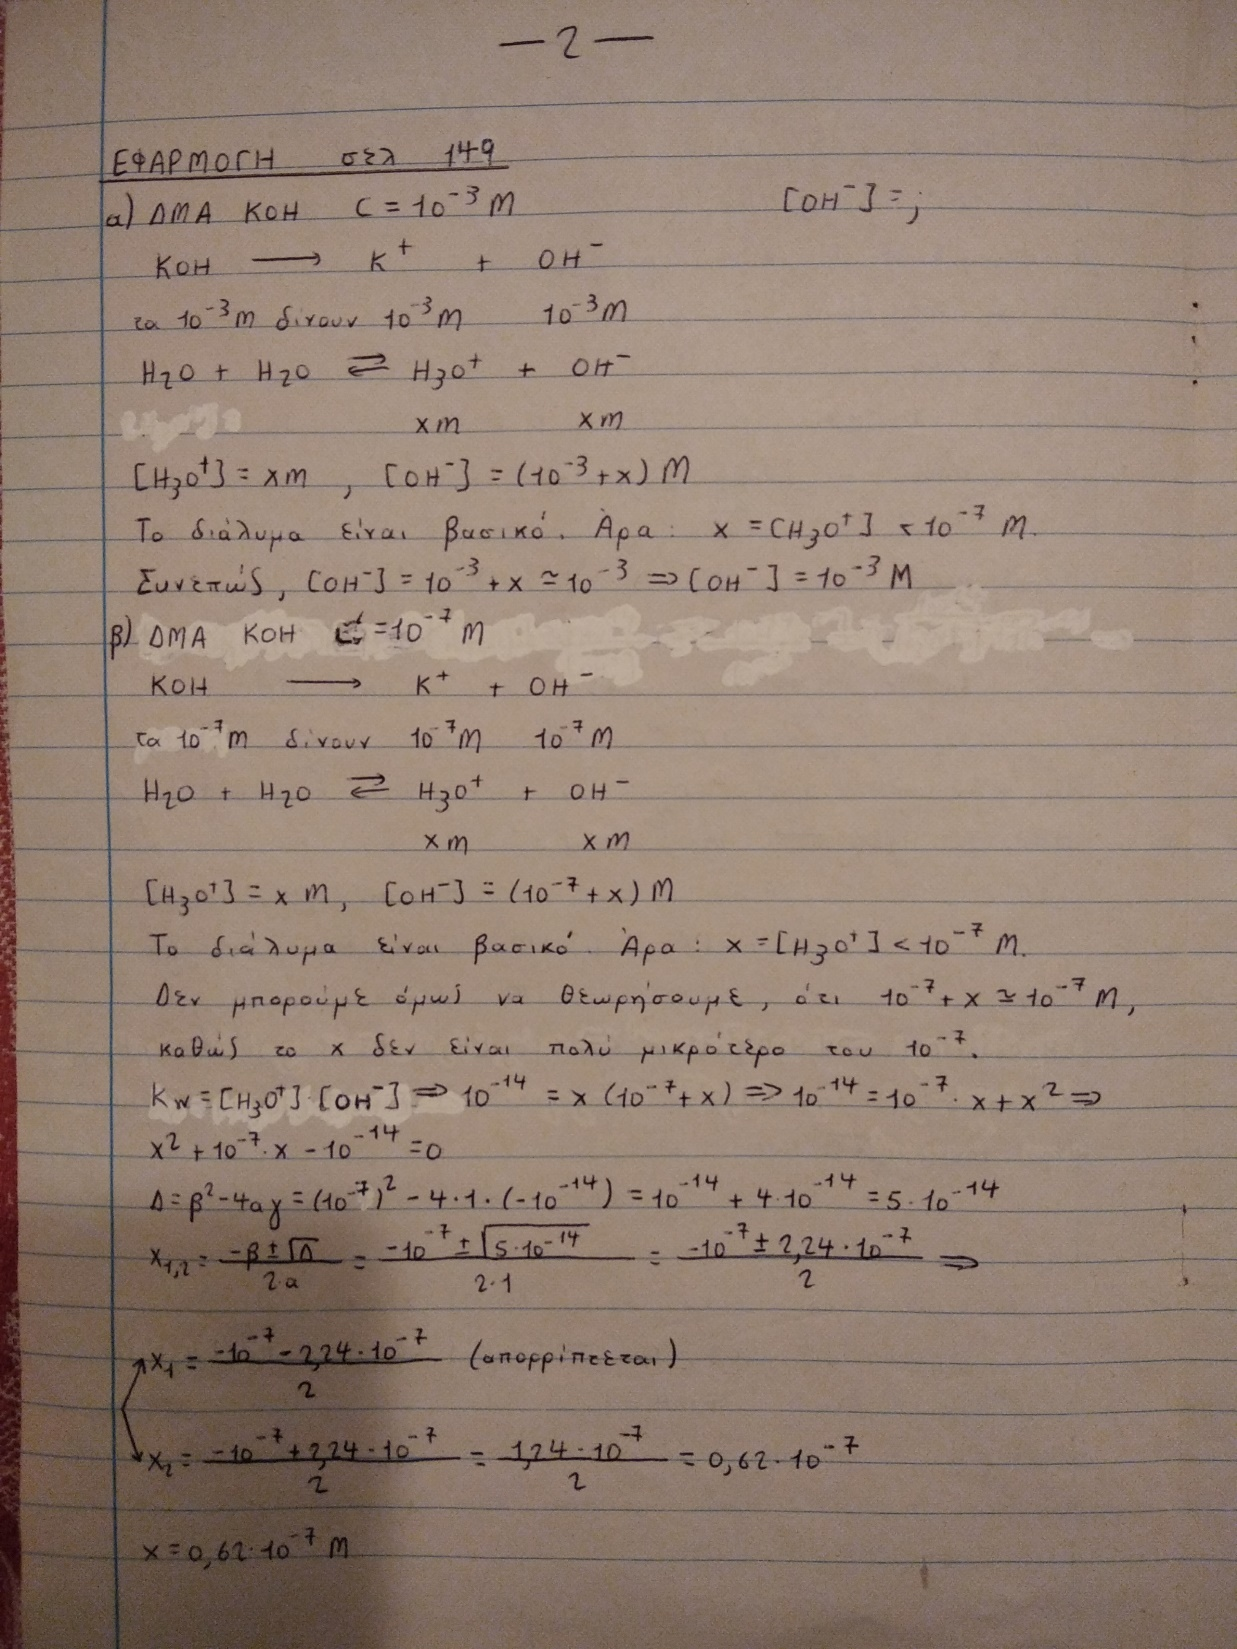 — 2 —
ΕΦΑΡΜΟΓΗ σελ 149
α) ΔΜΑ KOH C = 10⁻³ M [OH⁻] = ;
KOH ⟶ K⁺ + OH⁻
τα 10⁻³ M δίνουν 10⁻³ M 10⁻³ M
H₂O + H₂O ⇌ H₃O⁺ + OH⁻
x M x M
[H₃O⁺] = x M , [OH⁻] = (10⁻³ + x) M
Το διάλυμα είναι βασικό. Άρα : x = [H₃O⁺] < 10⁻⁷ M.
Συνεπώς, [OH⁻] = 10⁻³ + x ≃ 10⁻³ ⇒ [OH⁻] = 10⁻³ M
β) ΔΜΑ KOH C = 10⁻⁷ M
KOH ⟶ K⁺ + OH⁻
τα 10⁻⁷ M δίνουν 10⁻⁷ M 10⁻⁷ M
H₂O + H₂O ⇌ H₃O⁺ + OH⁻
x M x M
[H₃O⁺] = x M, [OH⁻] = (10⁻⁷ + x) M
Το διάλυμα είναι βασικό. Άρα : x = [H₃O⁺] < 10⁻⁷ M.
Δεν μπορούμε όμως να θεωρήσουμε, ότι 10⁻⁷ + x ≃ 10⁻⁷ M,
καθώς το x δεν είναι πολύ μικρότερο του 10⁻⁷.
Kw = [H₃O⁺]·[OH⁻] ⇒ 10⁻¹⁴ = x (10⁻⁷ + x) ⇒ 10⁻¹⁴ = 10⁻⁷ · x + x² ⇒
x² + 10⁻⁷ · x - 10⁻¹⁴ = 0
Δ = β² - 4αγ = (10⁻⁷)² - 4 · 1 · (-10⁻¹⁴) = 10⁻¹⁴ + 4 · 10⁻¹⁴ = 5 · 10⁻¹⁴
x₁,₂ = (-β ± √Δ) / 2·α = (-10⁻⁷ ± √(5·10⁻¹⁴)) / 2·1 = (-10⁻⁷ ± 2,24 · 10⁻⁷) / 2 ⇒
x₁ = (-10⁻⁷ - 2,24 · 10⁻⁷) / 2 (απορρίπτεται)
x₂ = (-10⁻⁷ + 2,24 · 10⁻⁷) / 2 = 1,24 · 10⁻⁷ / 2 = 0,62 · 10⁻⁷
x = 0,62 · 10⁻⁷ M